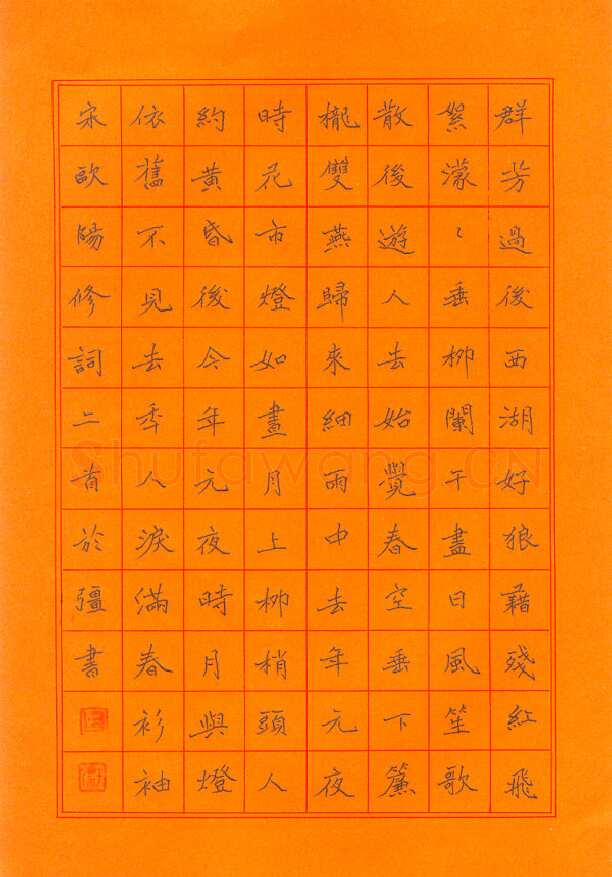 群芳過後西湖好狼藉殘紅飛
絮濛〻垂柳闌干盡日風笙歌
散後遊人去始覺春空垂下簾
櫳雙燕歸來細雨中去年元夜
時花市燈如晝月上柳梢頭人
約黃昏後今年元夜時月與燈
依舊不見去年人淚滿春衫袖
宋歐陽修詞二首於疆書
Shufawang.CN